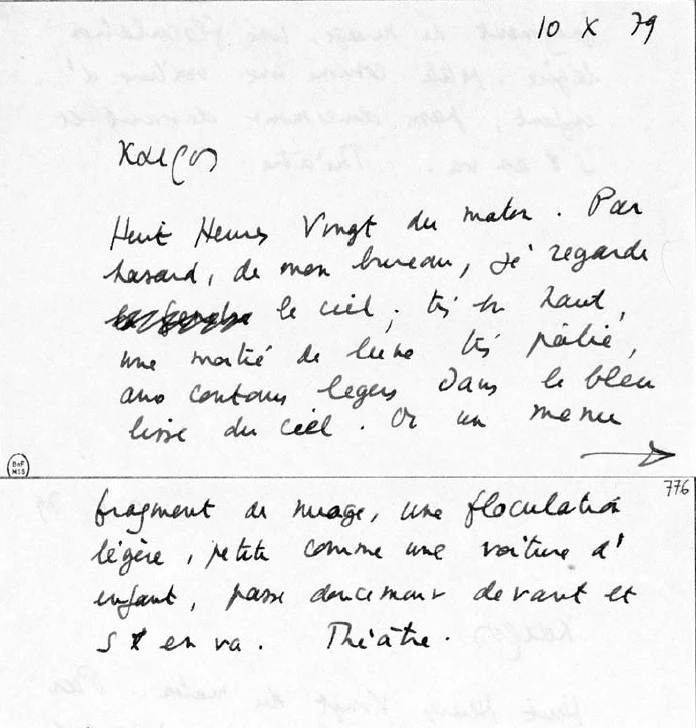 10 X 79
Kairos
Huit Heures Vingt du matin. Par
hasard, de mon bureau, je regarde
le ciel ; très en haut,
une moitié de lune très pâlie,
aux contours légers dans le bleu
lisse du ciel. Or un menu
BnF
MSS
776
fragment de nuage, une floculation
légère, petite comme une voiture d'
enfant, passe doucement devant et
s'en va. Théâtre.